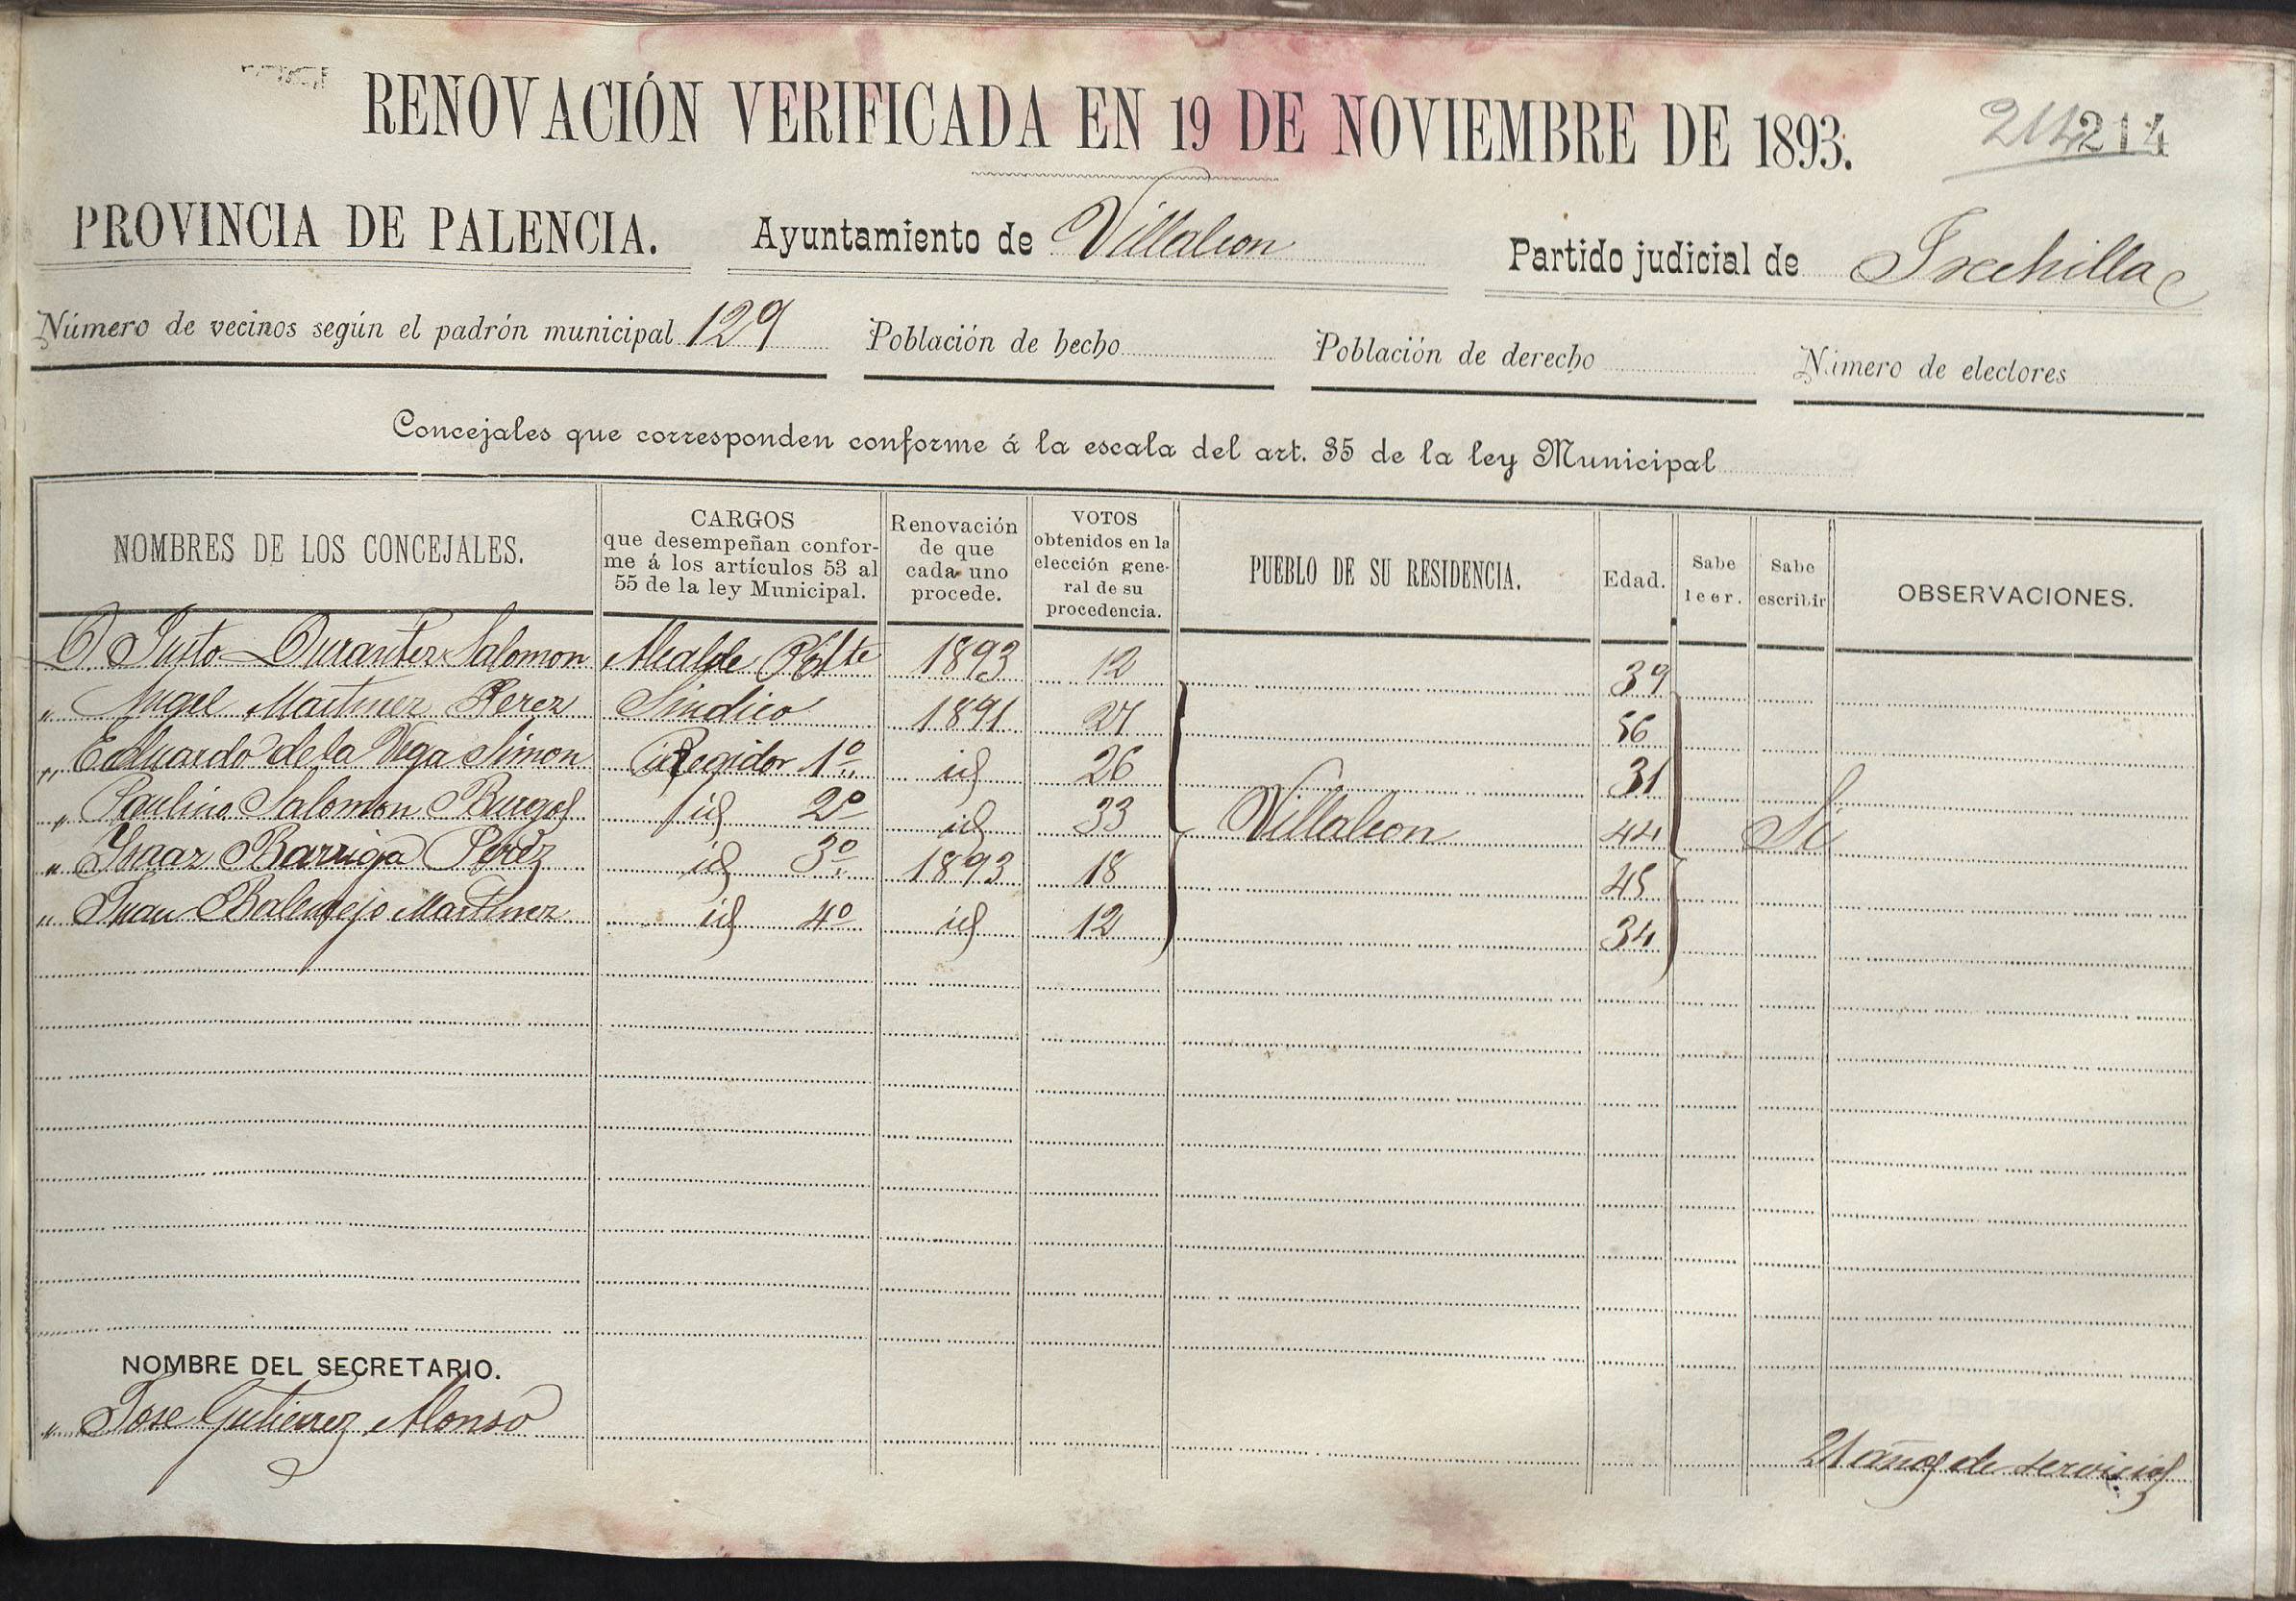 RENOVACIÓN VERIFICADA EN 19 DE NOVIEMBRE DE 1893.
214 214
PROVINCIA DE PALENCIA. Ayuntamiento de Villaleon Partido judicial de Frechilla
Número de vecinos según el padrón municipal 129 Población de hecho Población de derecho Número de electores
Concejales que corresponden conforme á la escala del art. 35 de la ley Municipal
NOMBRES DE LOS CONCEJALES.
CARGOS
que desempeñan confor-
me á los artículos 53 al
55 de la ley Municipal.
Renovación
de que
cada uno
procede.
VOTOS
obtenidos en la
elección gene-
ral de su
procedencia.
PUEBLO DE SU RESIDENCIA.
Edad.
Sabe
leer.
Sabe
escribir
OBSERVACIONES.
D Justo Durantez Salomon Alcalde Pdte 1893 12 39
" Angel Martinez Perez Sindico 1891 27 56
" Eduardo de la Vega Simon Regidor 1º id 26 31
" Paulino Salomon Burgos id 2º id 33 Villaleon 44 Si
" Isaac Barriga Perez id 3º 1893 18 45
" Juan Martinez id 4º id 12 34
NOMBRE DEL SECRETARIO.
" Jose Gutierrez Alonso 21 años de servicios